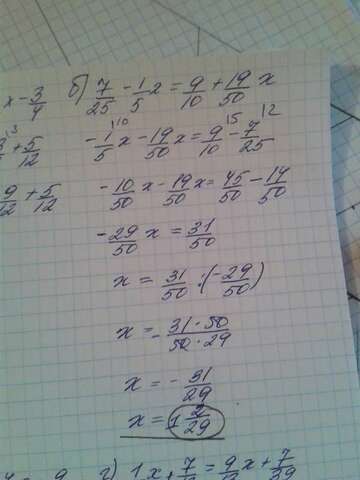 x-3/4
б) 7/25 - 1/5 x = 9/10 + 19/50 x
+ 5/12
-1/5 x - 19/50 x = 9/10 - 7/25
9/12 + 5/12
-10/50 x - 19/50 x = 45/50 - 14/50
-29/50 x = 31/50
x = 31/50 : (-29/50)
x = - 31·50/50·29
x = - 31/29
x = 1 2/29
г) 1x + 7/ = 9/ x + 7/39